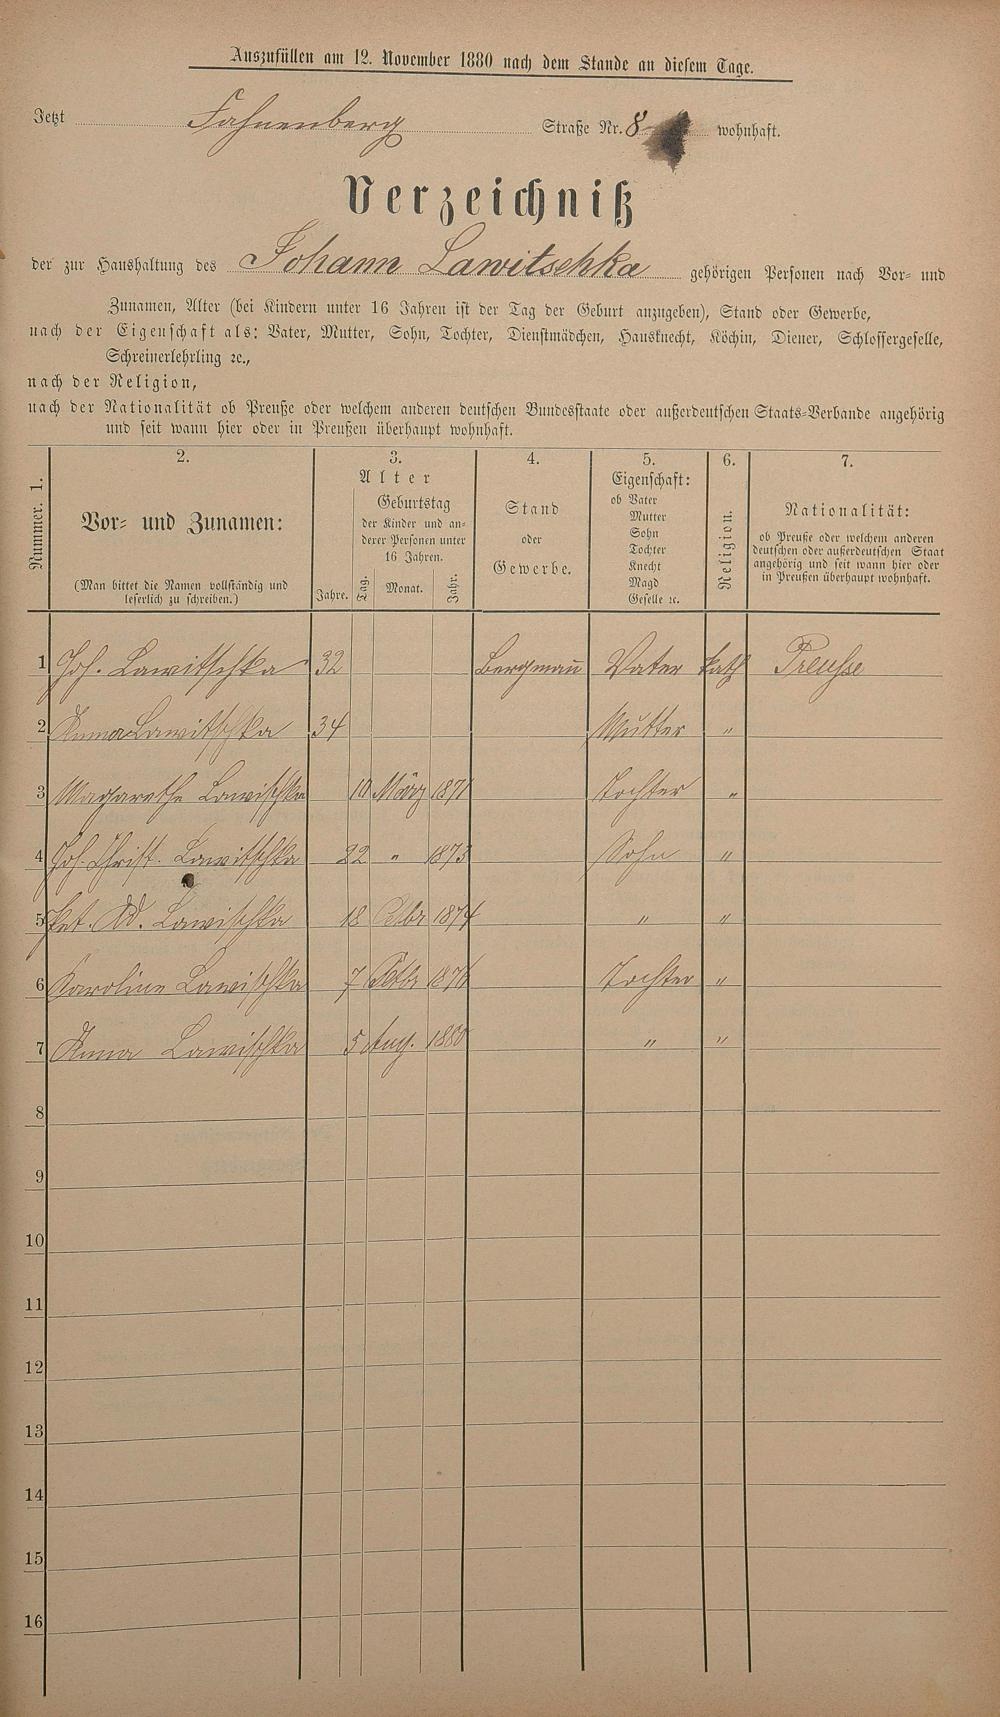 Auszufüllen am 12. November 1880 nach dem Stande an diesem Tage.
Jetzt Fahnenberg Straße Nr. 8 wohnhaft.
Verzeichniß
der zur Haushaltung des Johann Lawitschka gehörigen Personen nach Vor- und
Zunamen, Alter (bei Kindern unter 16 Jahren ist der Tag der Geburt anzugeben), Stand oder Gewerbe,
nach der Eigenschaft als: Vater, Mutter, Sohn, Tochter, Dienstmädchen, Hausknecht, Köchin, Diener, Schlossergeselle,
Schreinerlehrling ꝛc.,
nach der Religion,
nach der Nationalität ob Preuße oder welchem anderen deutschen Bundesstaate oder außerdeutschen Staats-Verbande angehörig
und seit wann hier oder in Preußen überhaupt wohnhaft.
Nummer. 1.
2.
Vor- und Zunamen:
(Man bittet die Namen vollständig und
leserlich zu schreiben.)
3.
Alter
Geburtstag
der Kinder und an-
derer Personen unter
16 Jahren.
Jahre. Tag. Monat. Jahr.
4.
Stand
oder
Gewerbe.
5.
Eigenschaft:
ob Vater
Mutter
Sohn
Tochter
Knecht
Magd
Geselle ꝛc.
6.
Religion.
7.
Nationalität:
ob Preuße oder welchem anderen
deutschen oder außerdeutschen Staat
angehörig und seit wann hier oder
in Preußen überhaupt wohnhaft.
1 Joh. Lawitschka 32 Bergmañ Vater kath Preusse
2 Anna Lawitschka 34 Mutter "
3 Magarethe Lawischka 10 März 1871 Tochter "
4 Joh. Christ. Lawitschka 22 " 1873 Sohn "
5 Pet. Ad. Lawischka 18 1874 " "
6 Karoline Lawischka 7 1876 Tochter "
7 Anna Lawischka 5 Aug. 1880 " "
8
9
10
11
12
13
14
15
16